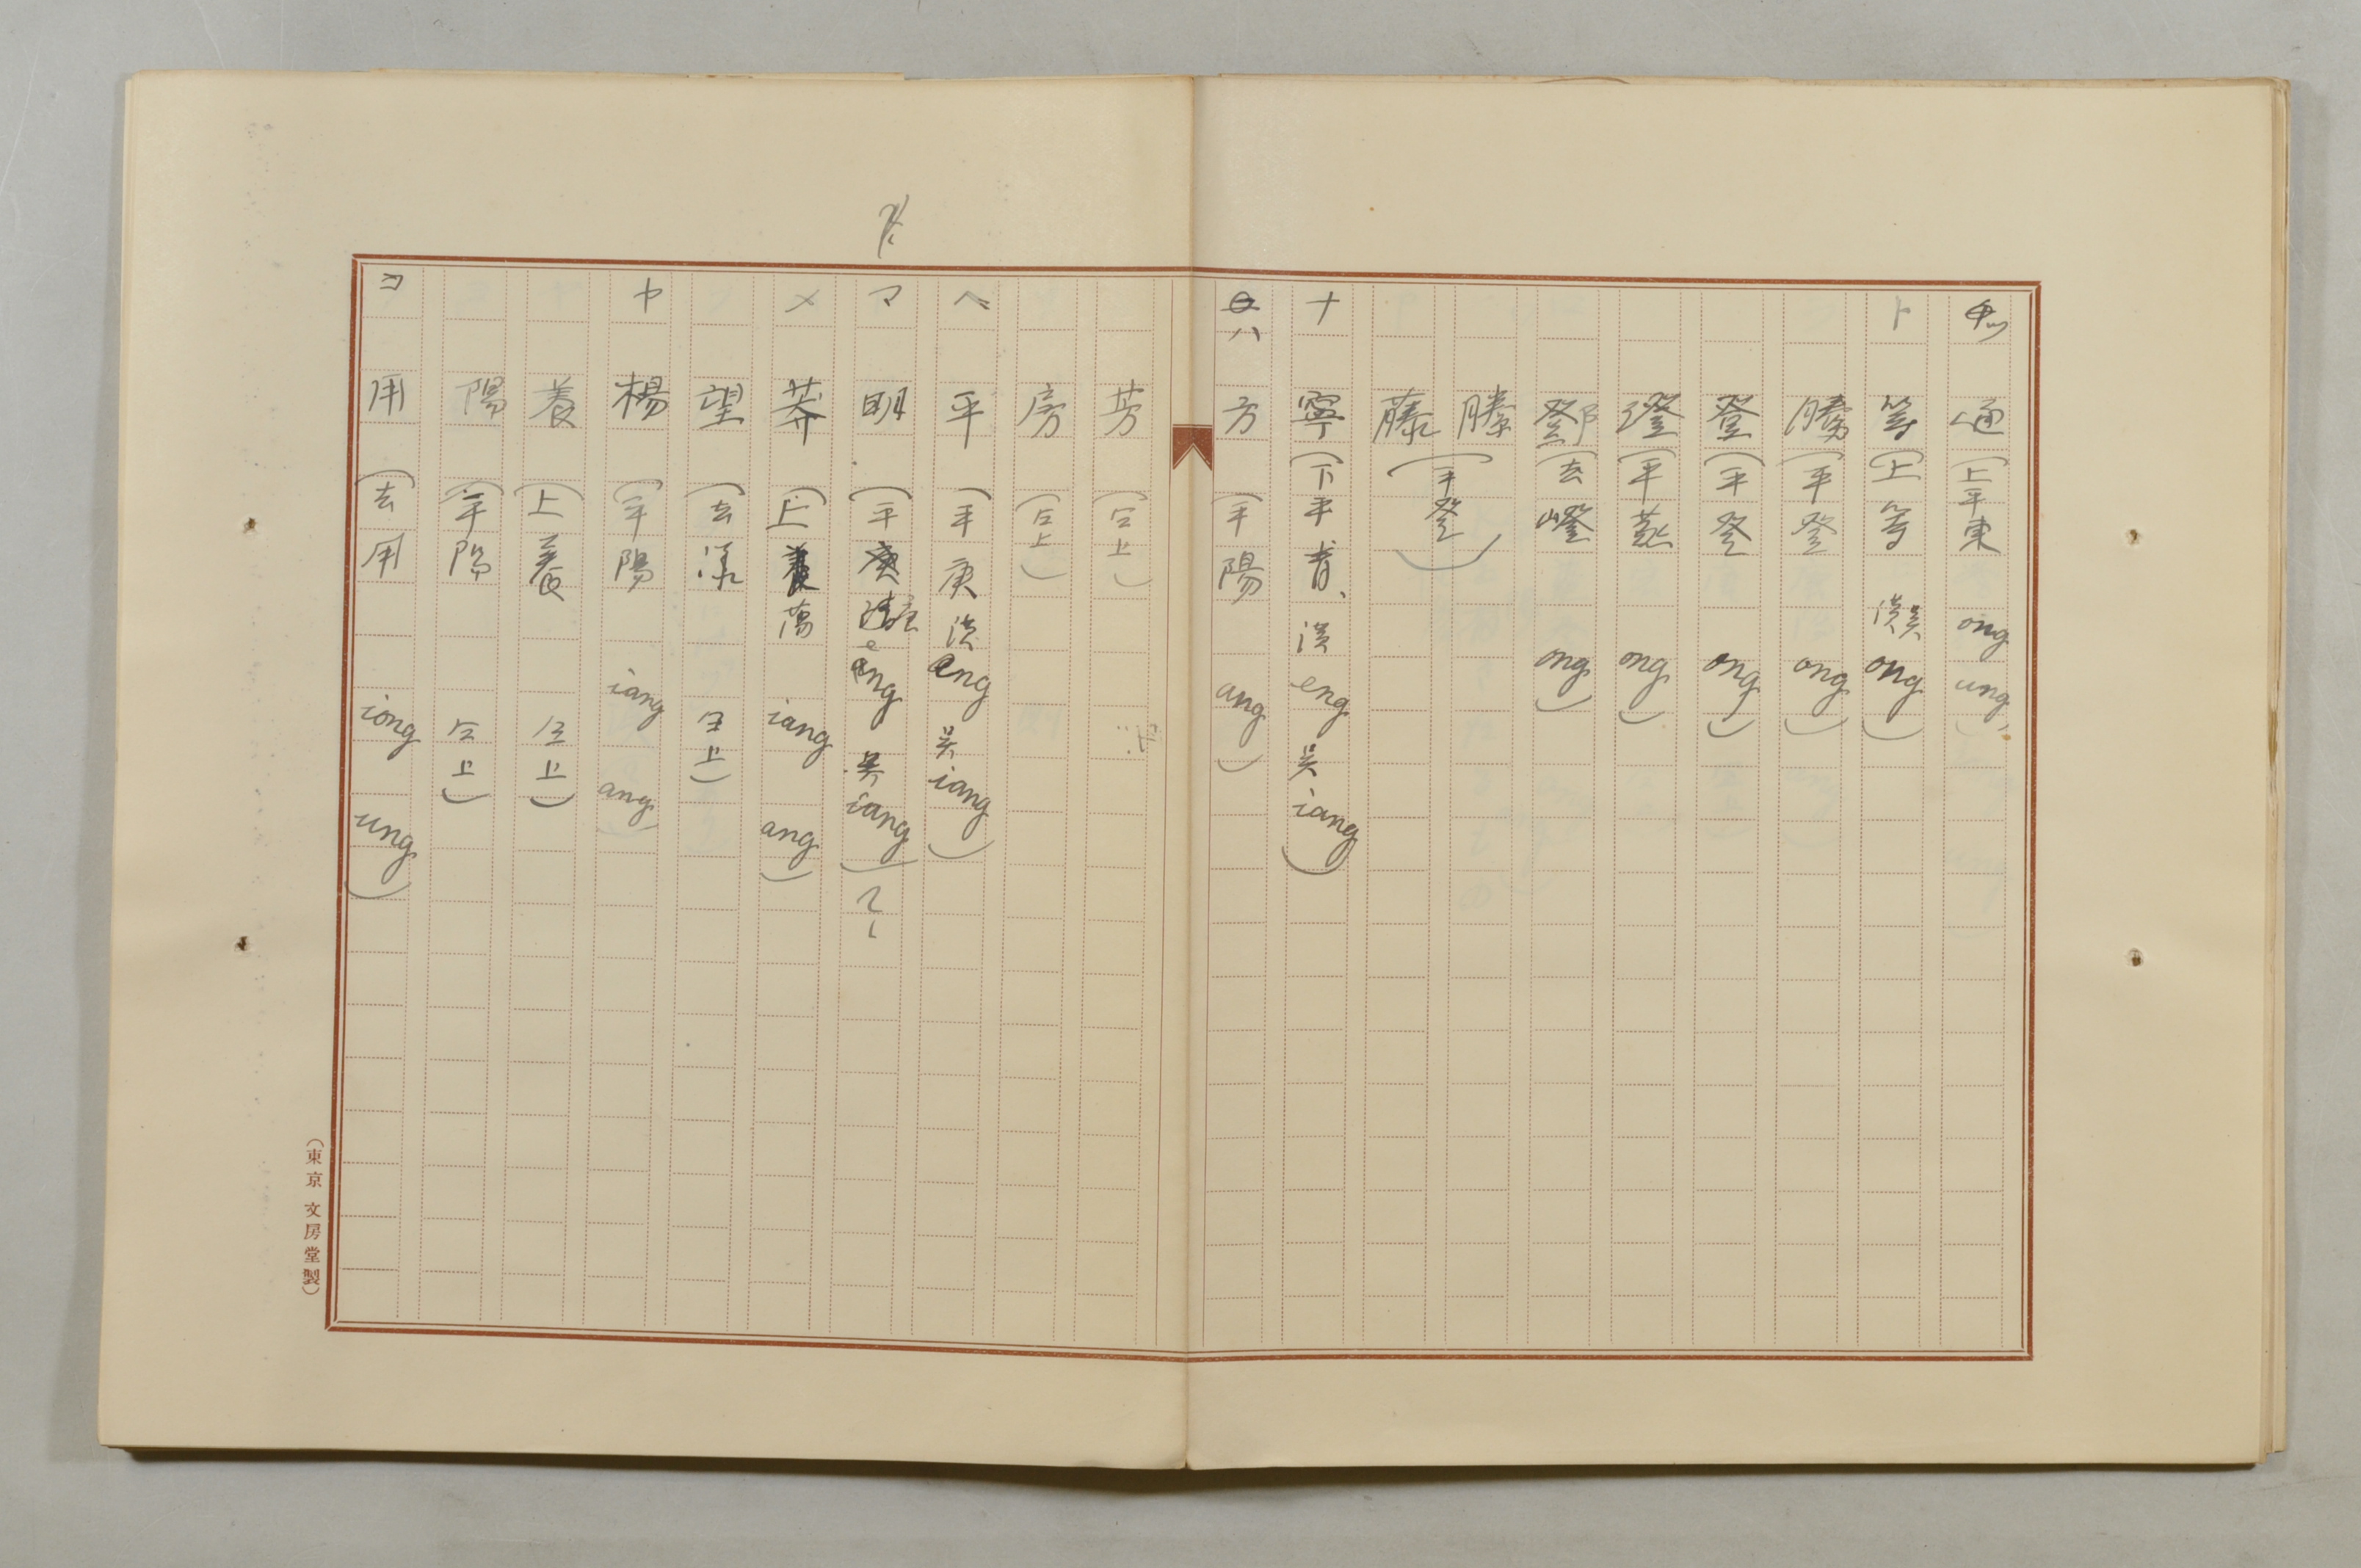 ツ 通 (上平東 ong ung)
ト 等 (上等 漢呉 ong)
騰 (平登 ong)
登 (平登 ong)
澄 (平蒸 ong)
鄧 (去嶝 ong)
滕
藤 (平登)
ナ 寧 (下平青、漢 eng 呉 iang)
ハ 方 (平陽 ang)
芳 (仝上)
房 (仝上)
ヘ 平 (平庚漢 eng 呉 iang)
マ 明 (平庚漢 eng 呉 iang)
メ 莽 (上養蕩 iang ang)
望 (去漾 仝上)
ヤ 楊 (平陽 iang ang)
養 (上養 仝上)
陽 (平陽 仝上)
ヨ 用 (去用 iong ung)
(東京 文房堂製)